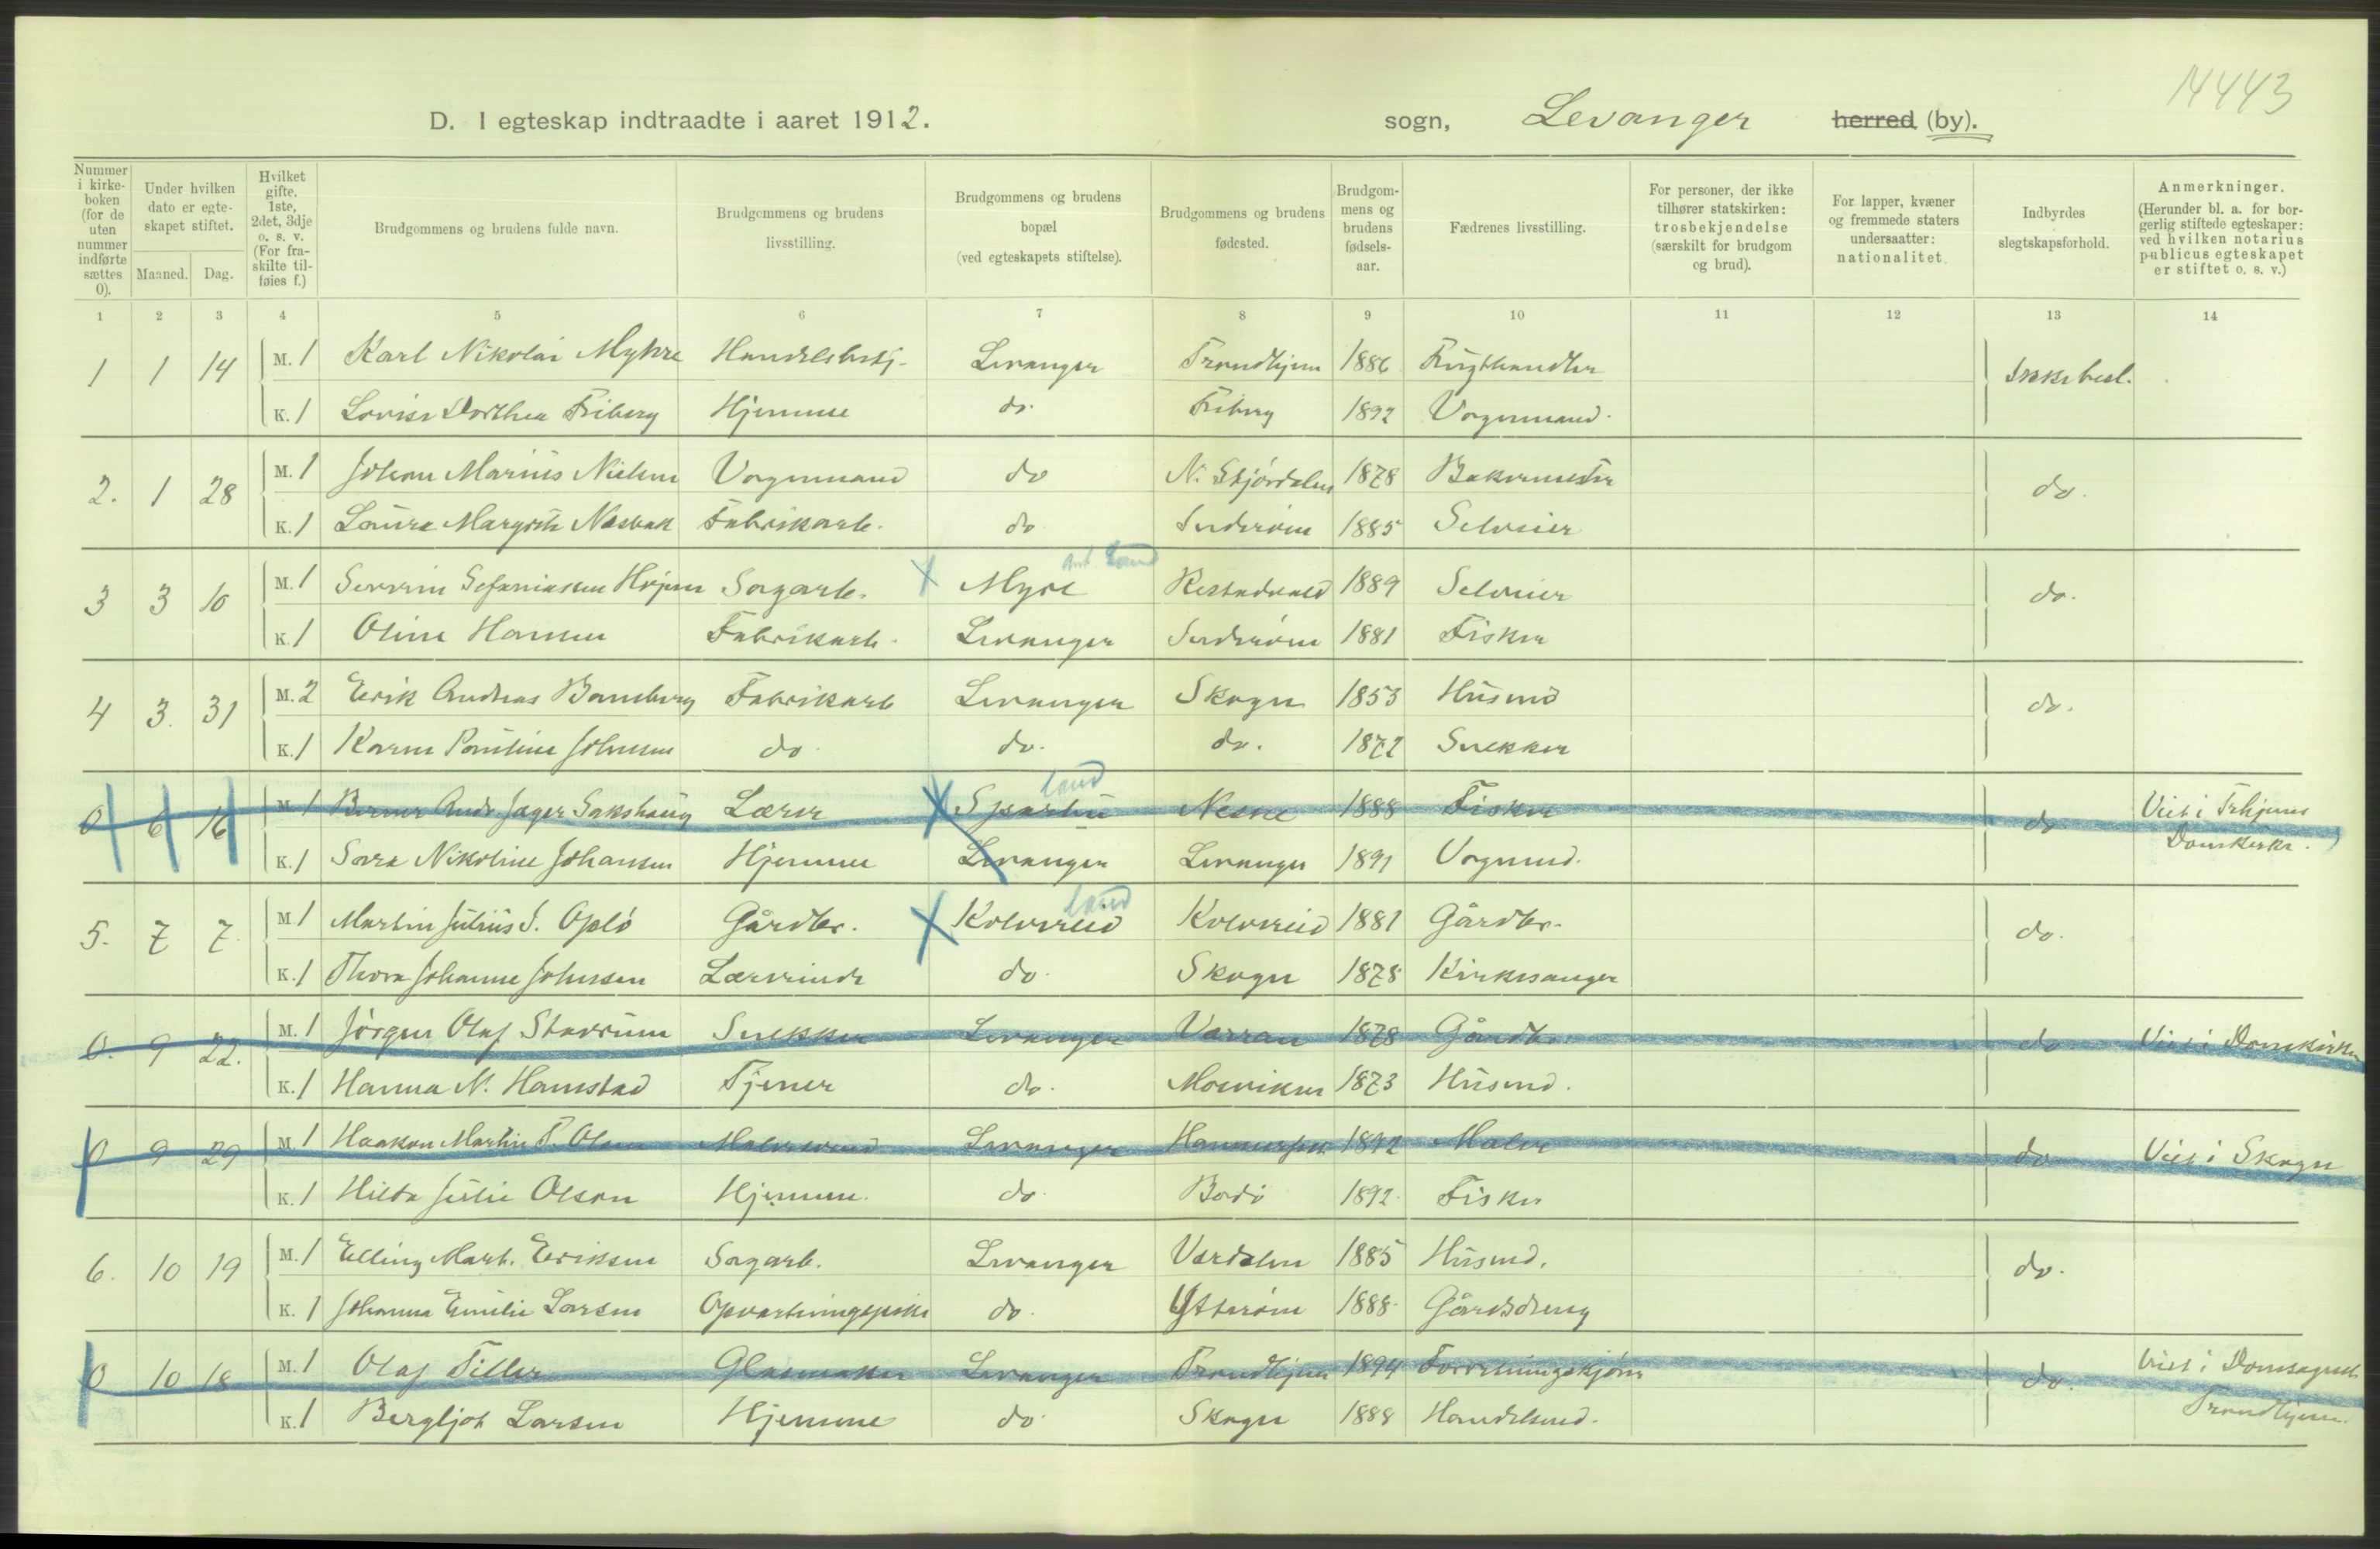 14443
D. I egteskap indtraadte i aaret 1912. sogn, Levanger herred (by).
Nummer i kirke-boken (for de uten nummer indførte sættes 0). Under hvilken dato er egte-skapet stiftet. Maaned. Dag. Hvilket gifte. 1ste, 2det, 3dje o. s. v. (For fra-skilte til-føies f.) Brudgommens og brudens fulde navn. Brudgommens og brudens livsstilling. Brudgommens og brudens bopæl (ved egteskapets stiftelse). Brudgommens og brudens fødested. Brudgom-mens og brudens fødsels-aar. Fædrenes livsstilling. For personer, der ikke tilhører statskirken: trosbekjendelse (særskilt for brudgom og brud). For lapper, kvæner og fremmede staters undersaatter: nationalitet. Indbyrdes slegtskapsforhold. Anmerkninger. (Herunder bl. a. for bor-gerlig stiftede egteskaper: ved hvilken notarius publicus egteskapet er stiftet o. s. v.)
1 2 3 4 5 6 7 8 9 10 11 12 13 14
1 1 14 M. 1 Karl Nikolai Myhre Handelsbetj. Levanger Trondhjem 1886 Frugthandler Ikke besl.
K. 1 Lovise Dorthea Friberg Hjemme do. Friberg 1892 Vognmand.
2. 1 28 M. 1 Johan Marius Nielsen Vognmand do N. Stjørdalen 1878 Bakermester do.
K. 1 Laura Margrete Nesbak Fabrikarb. do Inderøen 1885 Selveier
3 3 10 M. 1 Severin Sefaniassen Sagarb. Myre 1889 Selveier do.
K. 1 Oline Hansen Fabrikarb. Levanger Inderøen 1881 Fisker
4 3. 31 M. 2 Erik Andreas Bamberg Fabrikarb Levanger Skogn 1853 Husmd do.
K. 1 Karen Pauline Johnsen do. do. do. 1872 Snekker
land
0 6 16 M. 1 Berner Andr Jager Sakshaug Lærer Sparbu Nesne 1888 Fisker do Viet i Trhjems
Domkirke.
K. 1 Sara Nikoline Johansen Hjemme Levanger Levanger 1891 Vognmd.
land
5. 7 7. M. 1 Martin Julius J. Opló Gårdbr. Kolvereid Kolvereid 1881 Gårdbr. do.
K. 1 Thora Johanne Johnsen Lærerinde do. Skogn 1878 Kirkesanger
0. 9 22. M. 1 Jörgen Olaf Stavrum Snekker Levanger Verran 1878 Gårdbr. do Viet i Domkirken
K. 1 Hanna N. Hamstad Tjener do. Mosviken 1873 Husmd.
0 9 29 M. 1 Haakon Martin P. Olsen Malersvend Levanger 1892 Maler do Viet i Skogn
K. 1 Hilda Julie Olsen Hjemme. do. Bodö 1892. Fisker
6. 10 19 M. 1 Elling Mart. Eriksen Sagarb. Levanger Verdalen 1885 Husmd. do.
K. 1 Johanna Emilie Larsen Opvartningspike do. Ytterøen 1888. Gårdsdreng
0 10 18 M. 1 Olaf Tiller Glasmaker Levanger Trondhjem 1894 Forretningskjører do. Viet i Domsognet
Trondhjem.
K. 1 Bergljot Larsen Hjemme do. Skogn 1888 Handelsmd.